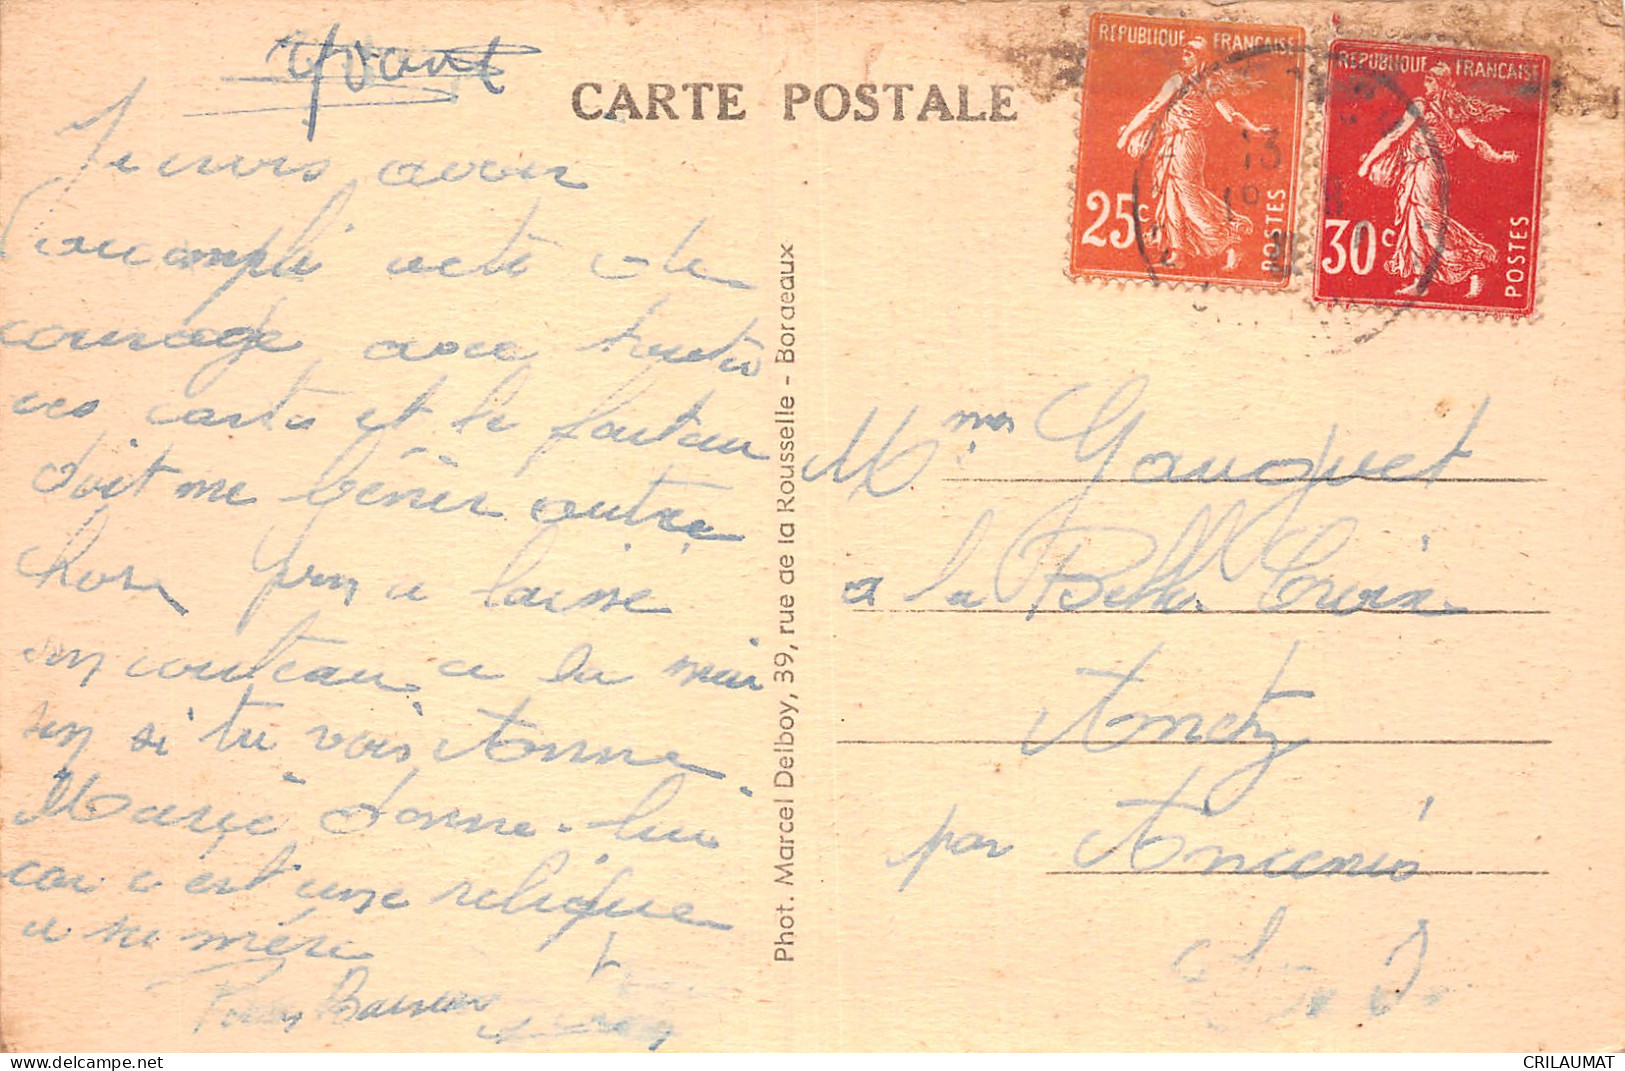 Yvont
CARTE POSTALE
REPUBLIQUE FRANÇAISE
25c
POSTES
REPUBLIQUE FRANÇAISE
30c
POSTES
13
Je crois avoir
accompli acte de
courage avec toutes
ces cartes et le
doit me gêner autre
chose a laissé
son couteau a la
si tu vois Anne
Marie donne-lui
car c'est une relique
a sa mère
Bons Baisers
Phot. Marcel Delboy, 39, rue de la Rousselle - Bordeaux
Mmes Gauguet
a la Belle Croix
Anetz
par Ancenis
CRILAUMAT